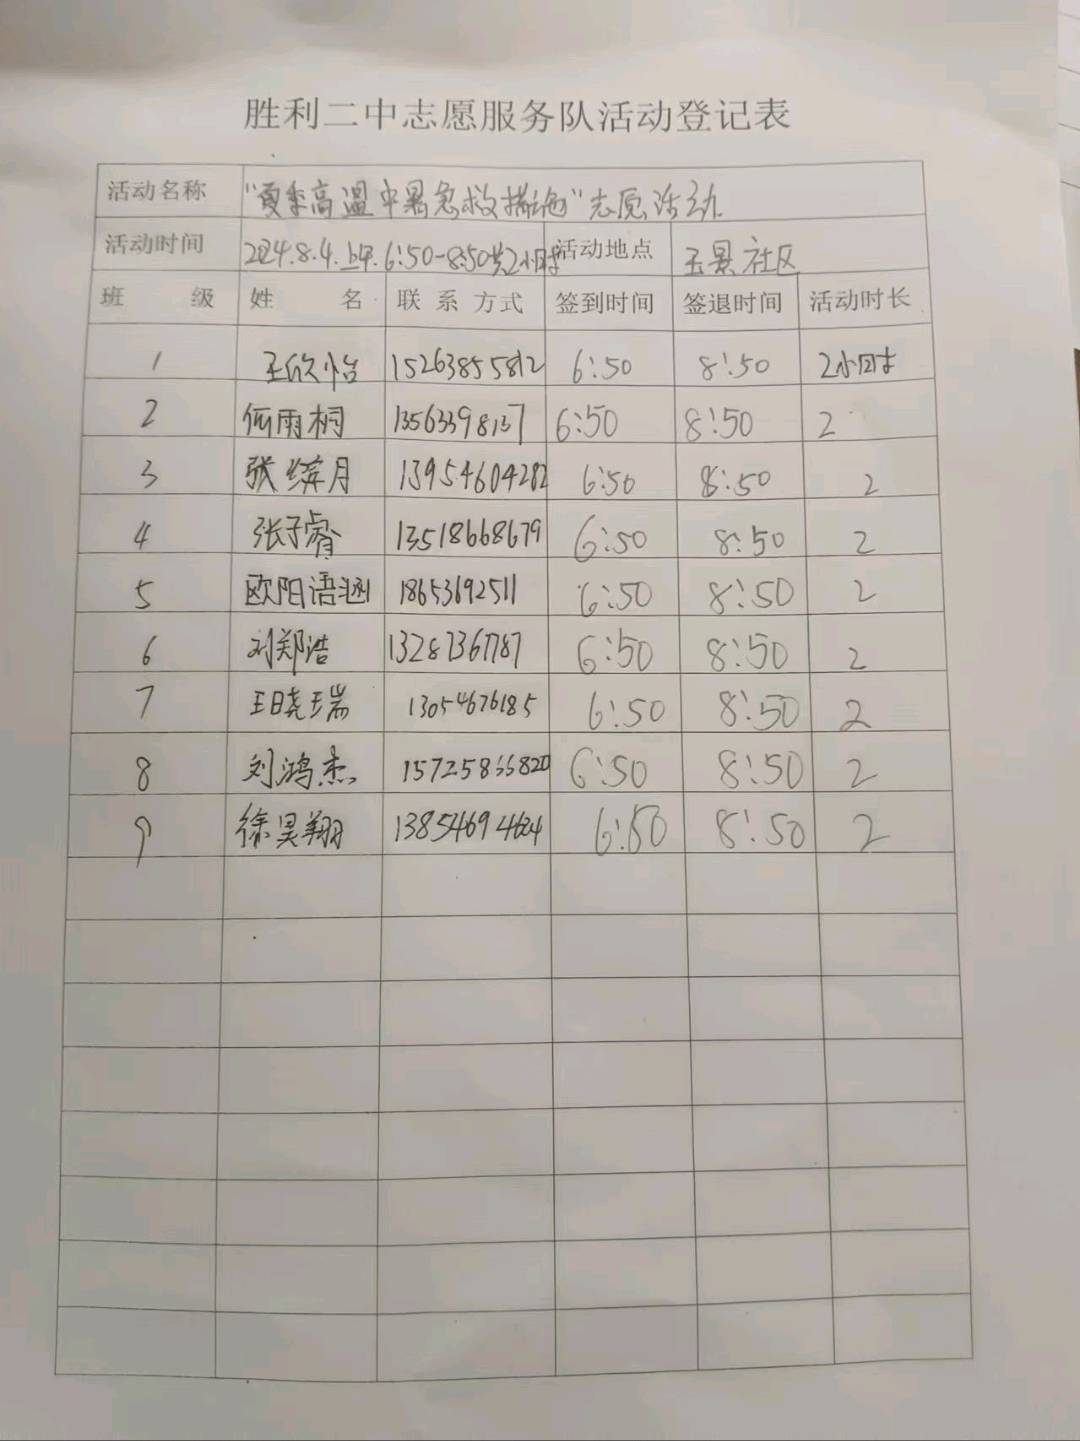 胜利二中志愿服务队活动登记表
活动名称 "夏季高温中暑急救措施"志愿活动
活动时间 2024.8.4.上午.6:50-8:50共2小时 活动地点 玉景社区
班 级 姓 名 联系方式 签到时间 签退时间 活动时长
1 王欣怡 15263855812 6:50 8:50 2小时
2 雨桐 6:50 8:50 2
3 张缤月 13954604282 6:50 8:50 2
4 张子睿 13518668679 6:50 8:50 2
5 欧阳语涵 18653692511 6:50 8:50 2
6 刘郑浩 13287367787 6:50 8:50 2
7 王晓瑞 6:50 8:50 2
8 刘鸿杰 6:50 8:50 2
9 徐昊翔 6:50 8:50 2